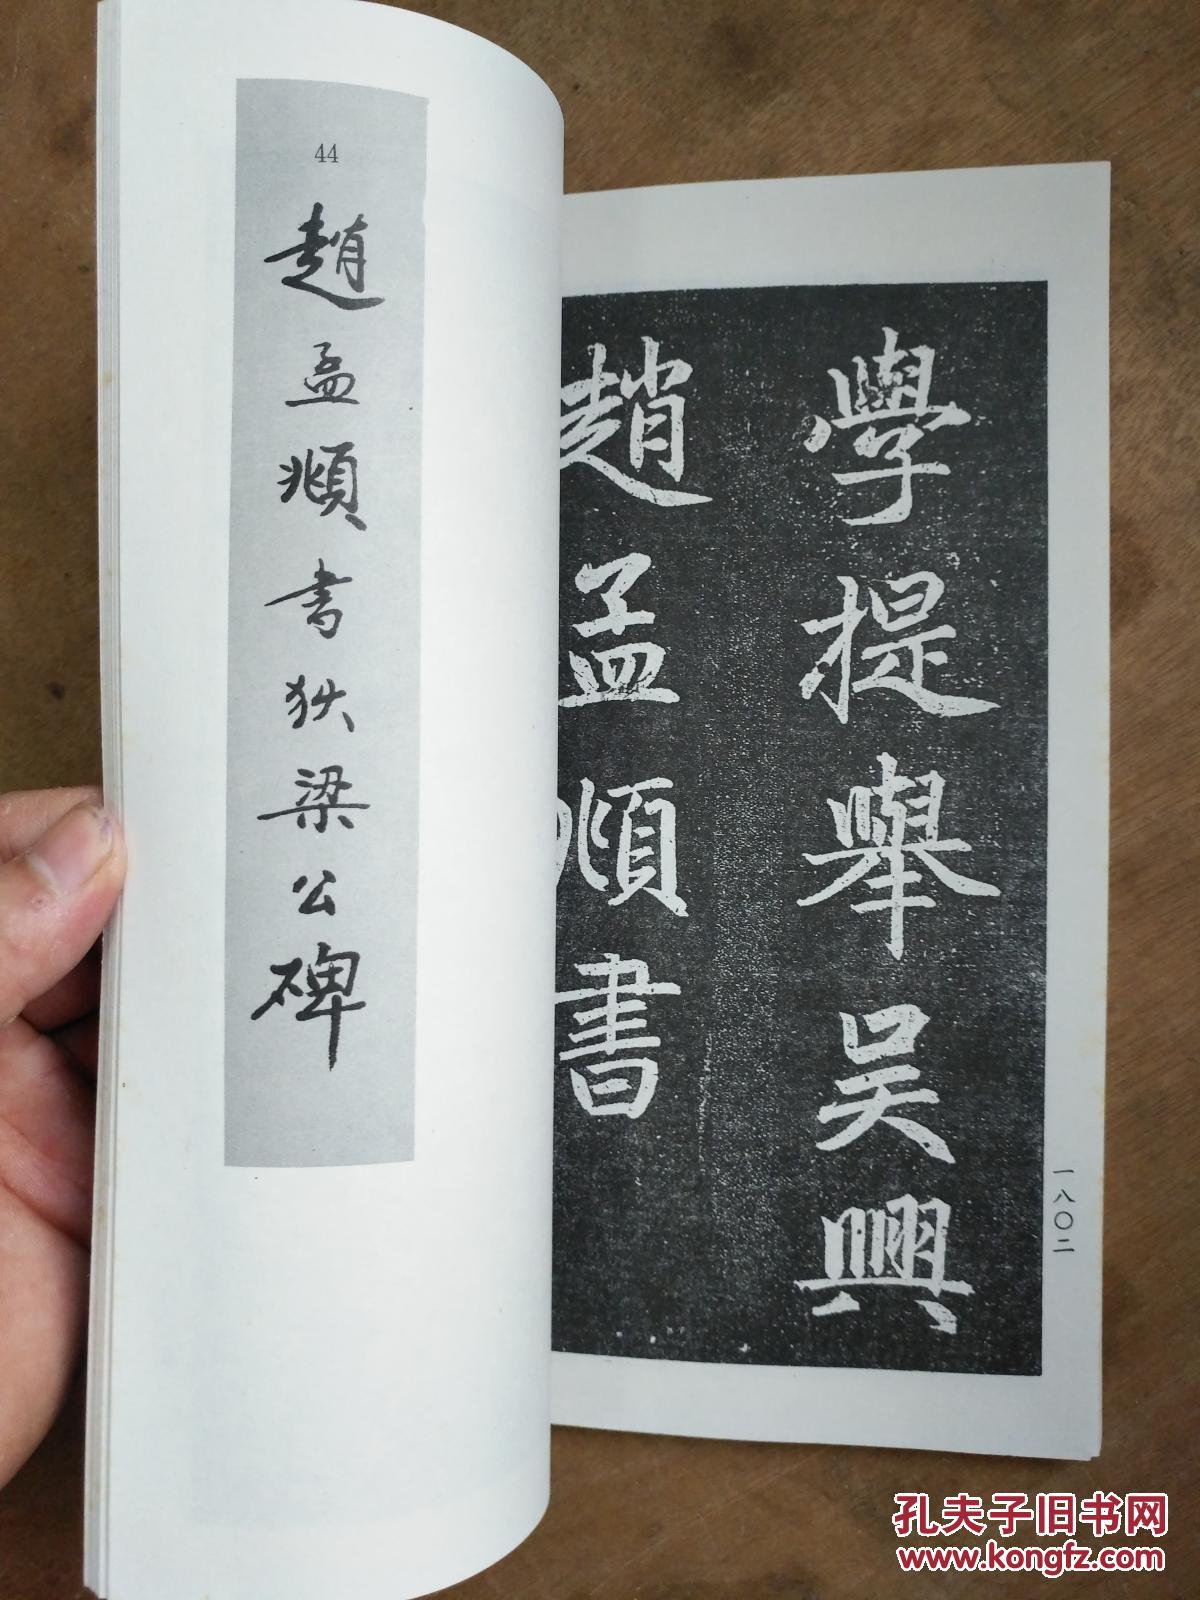 44
趙孟頫書狄梁公碑
學提舉吴興
趙孟頫書
一八〇二
孔夫子旧书网
www.kongfz.com